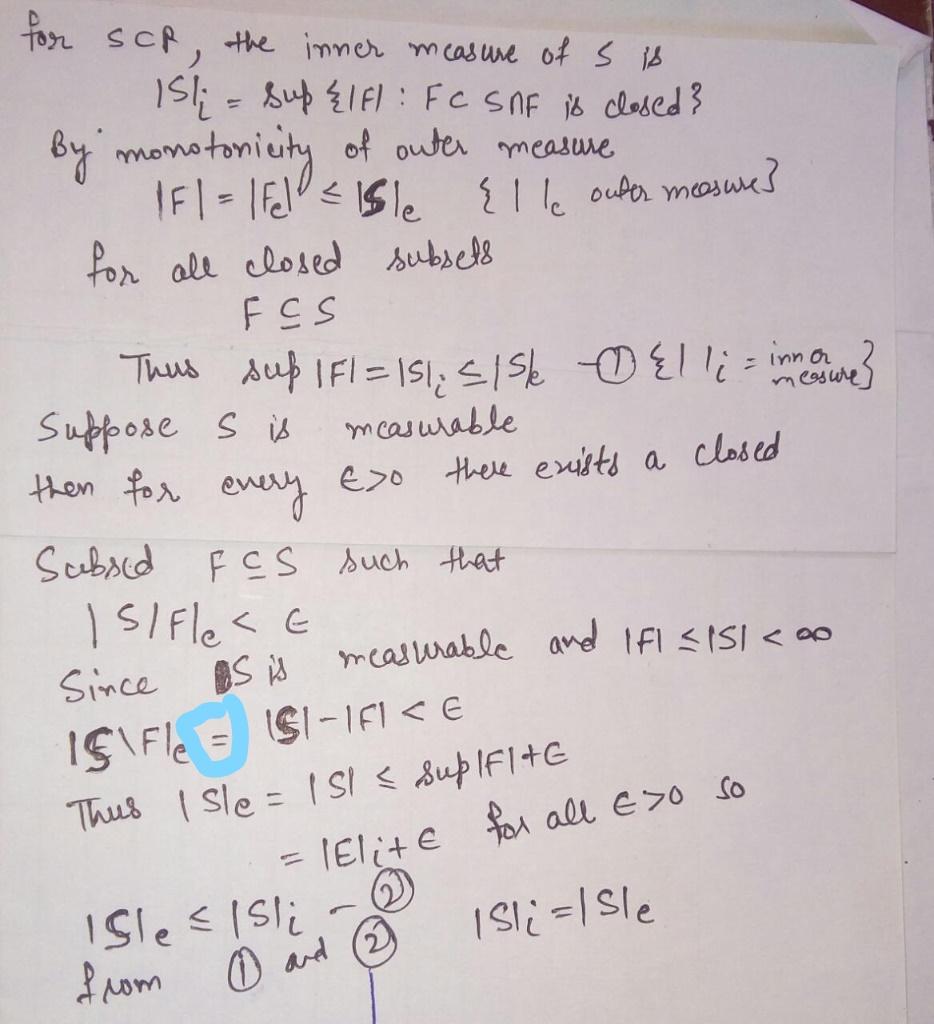 for S⊂R, the inner measure of S is
|S|i = Sup {|F| : F ⊂ S ∩ F is closed}
By monotonicity of outer measure
|F| = |Fe| ≤ |S|e { | |e outer measure}
for all closed subsets
F ⊆ S
Thus sup |F| = |S|i ≤ |S|e - ① { | |i = inner measure}
Suppose S is measurable
then for every ϵ>0 there exists a closed
Subset F ⊆ S such that
| S/F|e < ϵ
Since S is measurable and |F| ≤ |S| < ∞
|S\F|e = |S| - |F| < ϵ
Thus |S|e = |S| ≤ sup|F|+ϵ
= |E|i + ϵ for all ϵ>0 so
|S|e ≤ |S|i - ②
from ① and ② |S|i = |S|e